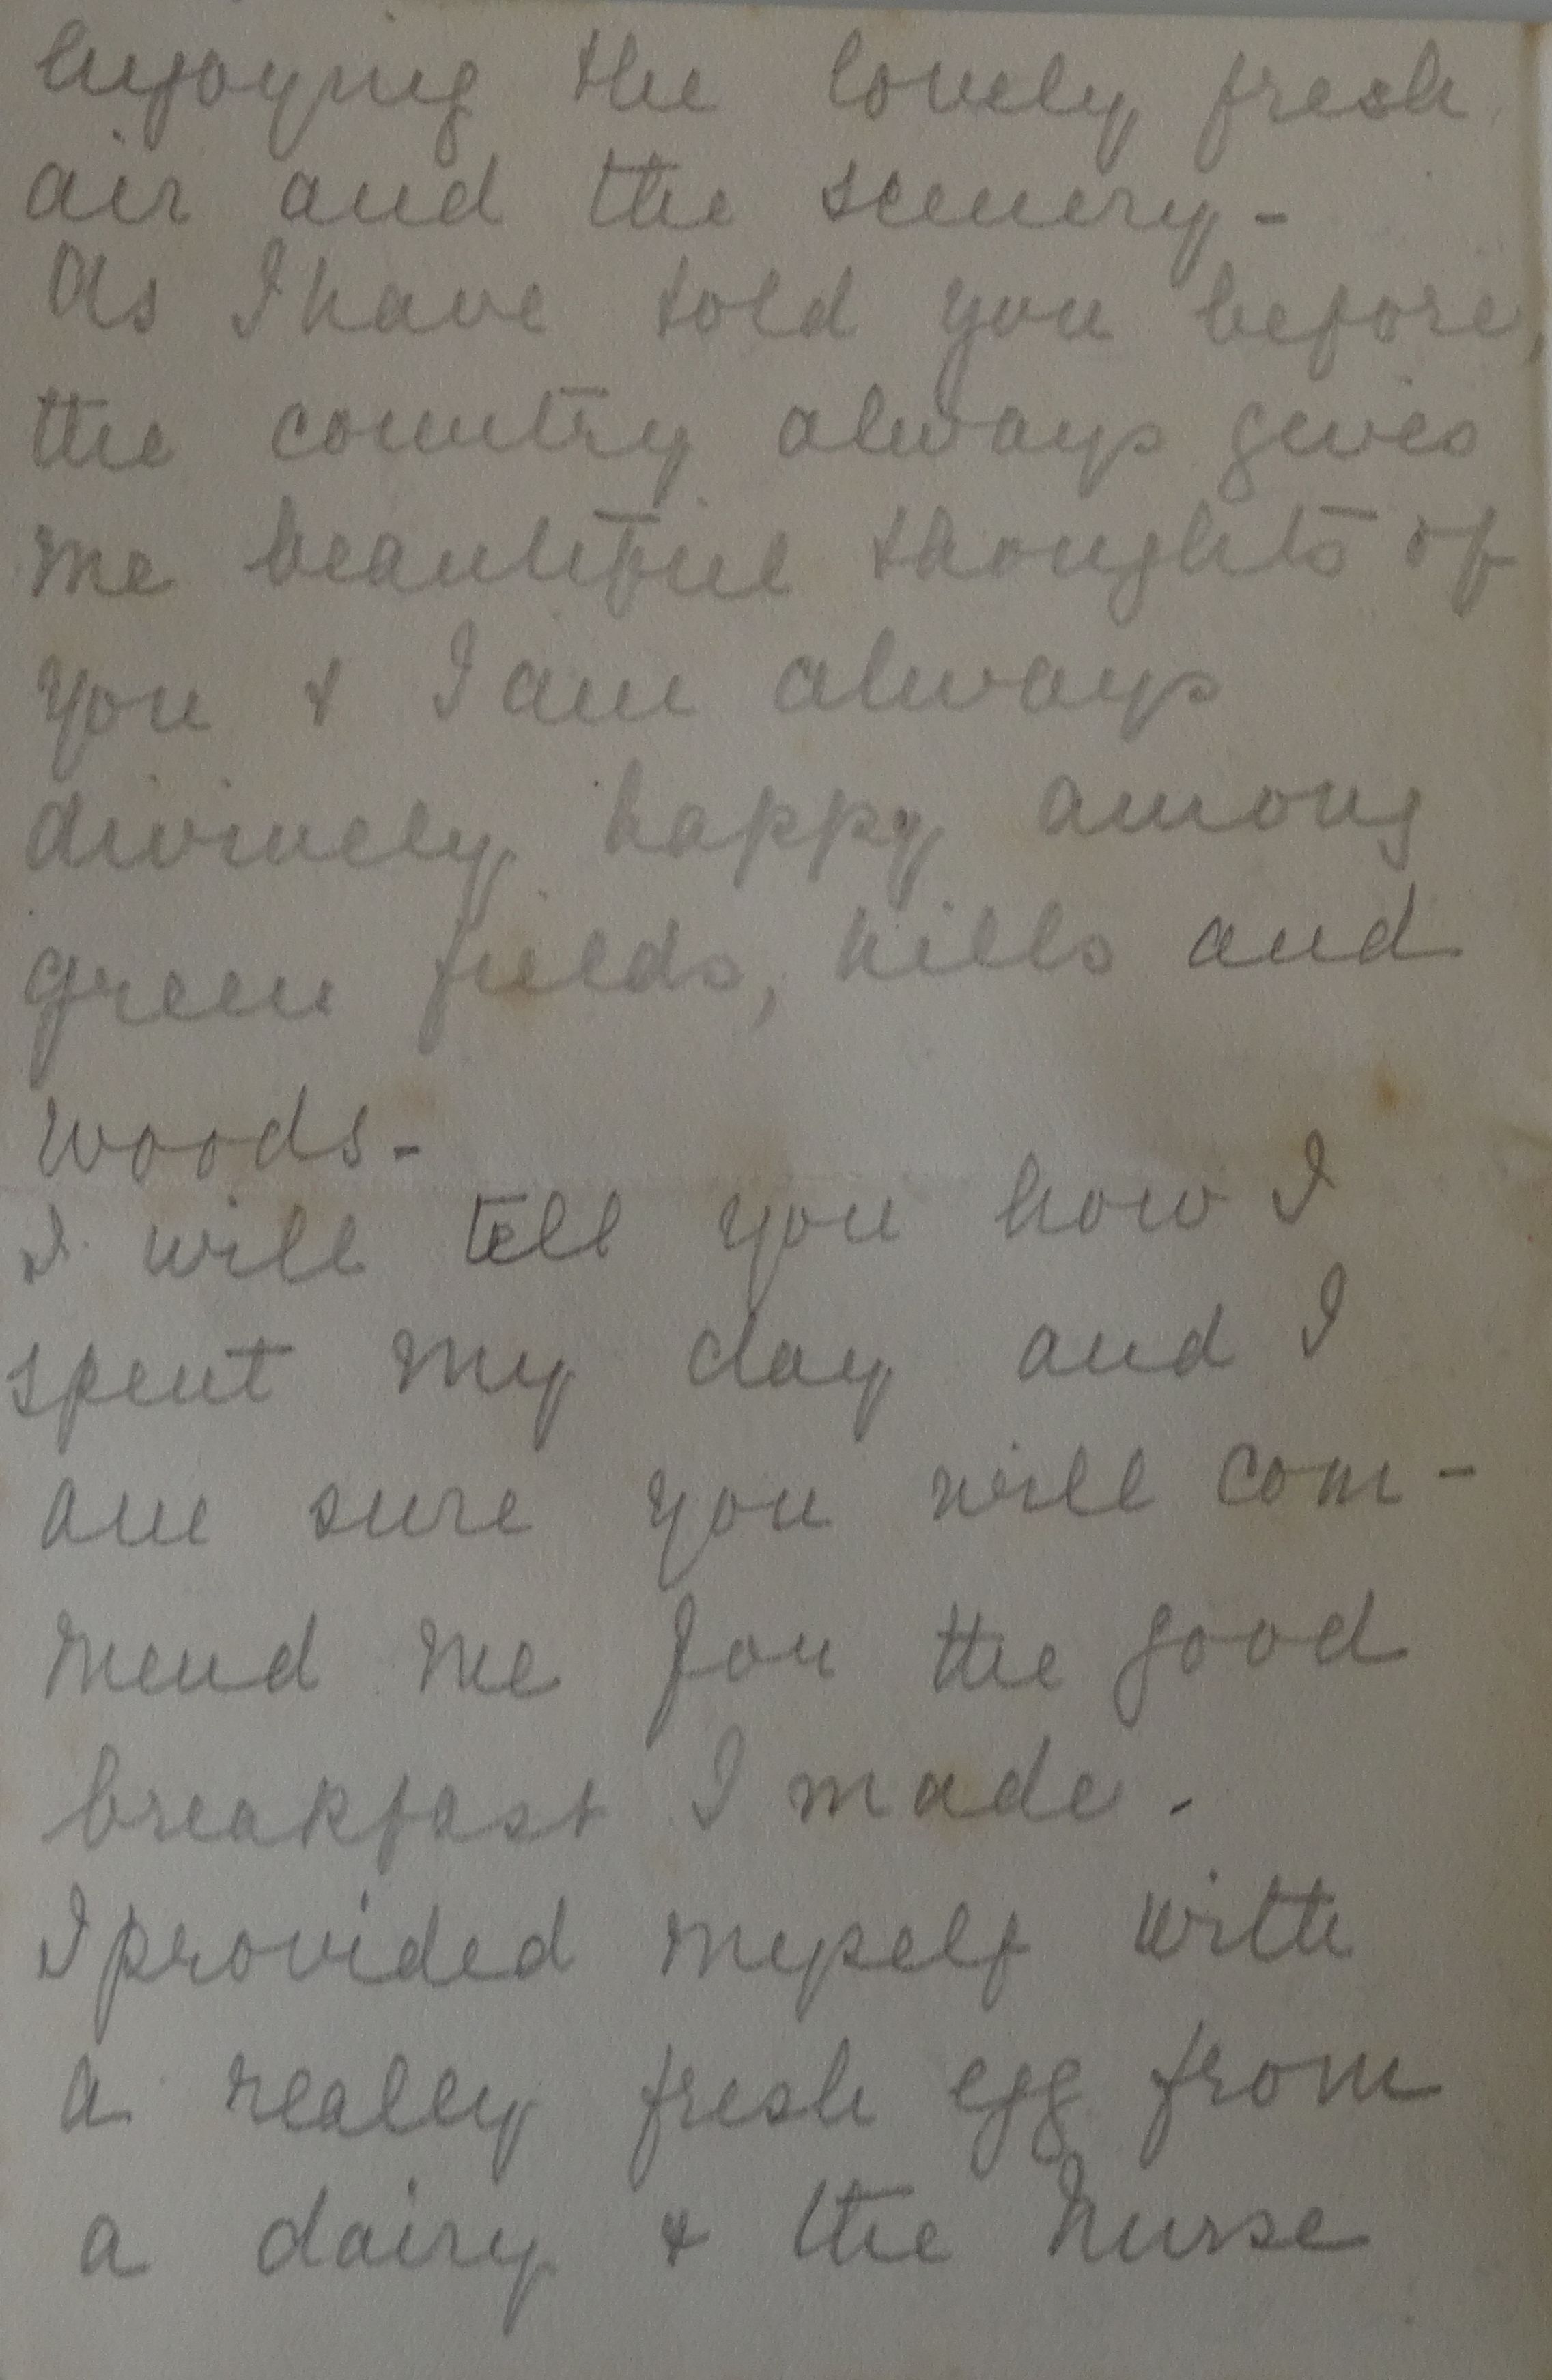 enjoying the lovely fresh
air and the scenery -
As I have told you before,
the country always gives
me beautiful thoughts of
you & I am always
divinely happy among
green fields, hills and
woods -
I will tell you how I
spent my day and I
am sure you will com-
mend me for the good
breakfast I made -
I provided myself with
a really fresh egg from
a dairy & the nurse